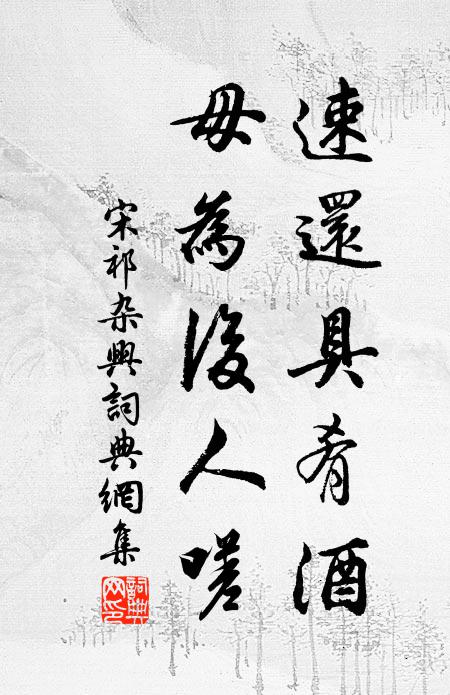 速還具肴酒
毋為後人嗟
宋祁杂興詞典網集
詞典网印